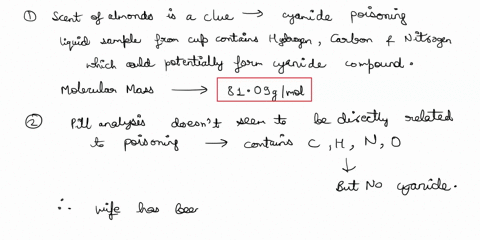 ① Scent of almonds is a clue → cyanide poisoning
liquid sample from cup contains Hydrogen, Carbon & Nitrogen
which could potentially form cyanide compound.
Molecular Mass → 81.09g/mol
② Pill analysis doesn't seem to be directly related
to poisoning → contains C, H, N, O
↓
But No cyanide.
∴ wife has bee